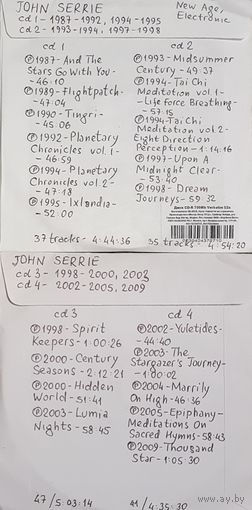 JOHN SERRIE
New Age,
Electronic
cd 1 - 1987-1992, 1994-1995
cd 2 - 1993-1994, 1997-1998
cd 1
℗1987-And The
Stars Go With You -
-46:10
℗1989-Flightpatch-
-47:04
℗1990-Tingri-
-45:06
℗1992-Planetary
Chronicles vol. 1-
-46:59
℗1994-Planetary
Chronicles vol. 2-
-47:18
℗1995-Ixlandia-
-52:00
37 tracks - 4:44:36
cd 2
℗1993-Midsummer
Century-49:37
℗1994-Tai Chi
Meditation vol.1-
-Life Force Breathing-
-57:15
℗1994-Tai Chi
Meditation vol 2-
Eight Direction
Perception-1:14:16
℗1997-Upon A
Midnight Clear-
-53:40
℗1998-Dream
Journeys-59:32
35 tracks - 4:54:20
JOHN SERRIE
cd 3 - 1998-2000, 2003
cd 4 - 2002-2005, 2009
cd 3
℗1998-Spirit
Keepers-1:00:26
℗2000-Century
Seasons-2:12:21
℗2000-Hidden
World-51:41
℗2003-Lumia
Nights-58:45
47 / 5:03:14
cd 4
℗2002-Yuletides-
-44:40
℗2003-The
Stargazer's Journey-
-1:00:02
℗2004-Marrily
On High-46:36
℗2005-Epiphany-
Meditations On
Sacred Hymns-58:43
℗2009-Thousand
Star-1:05:30
41 / 4:35:30
ay.by